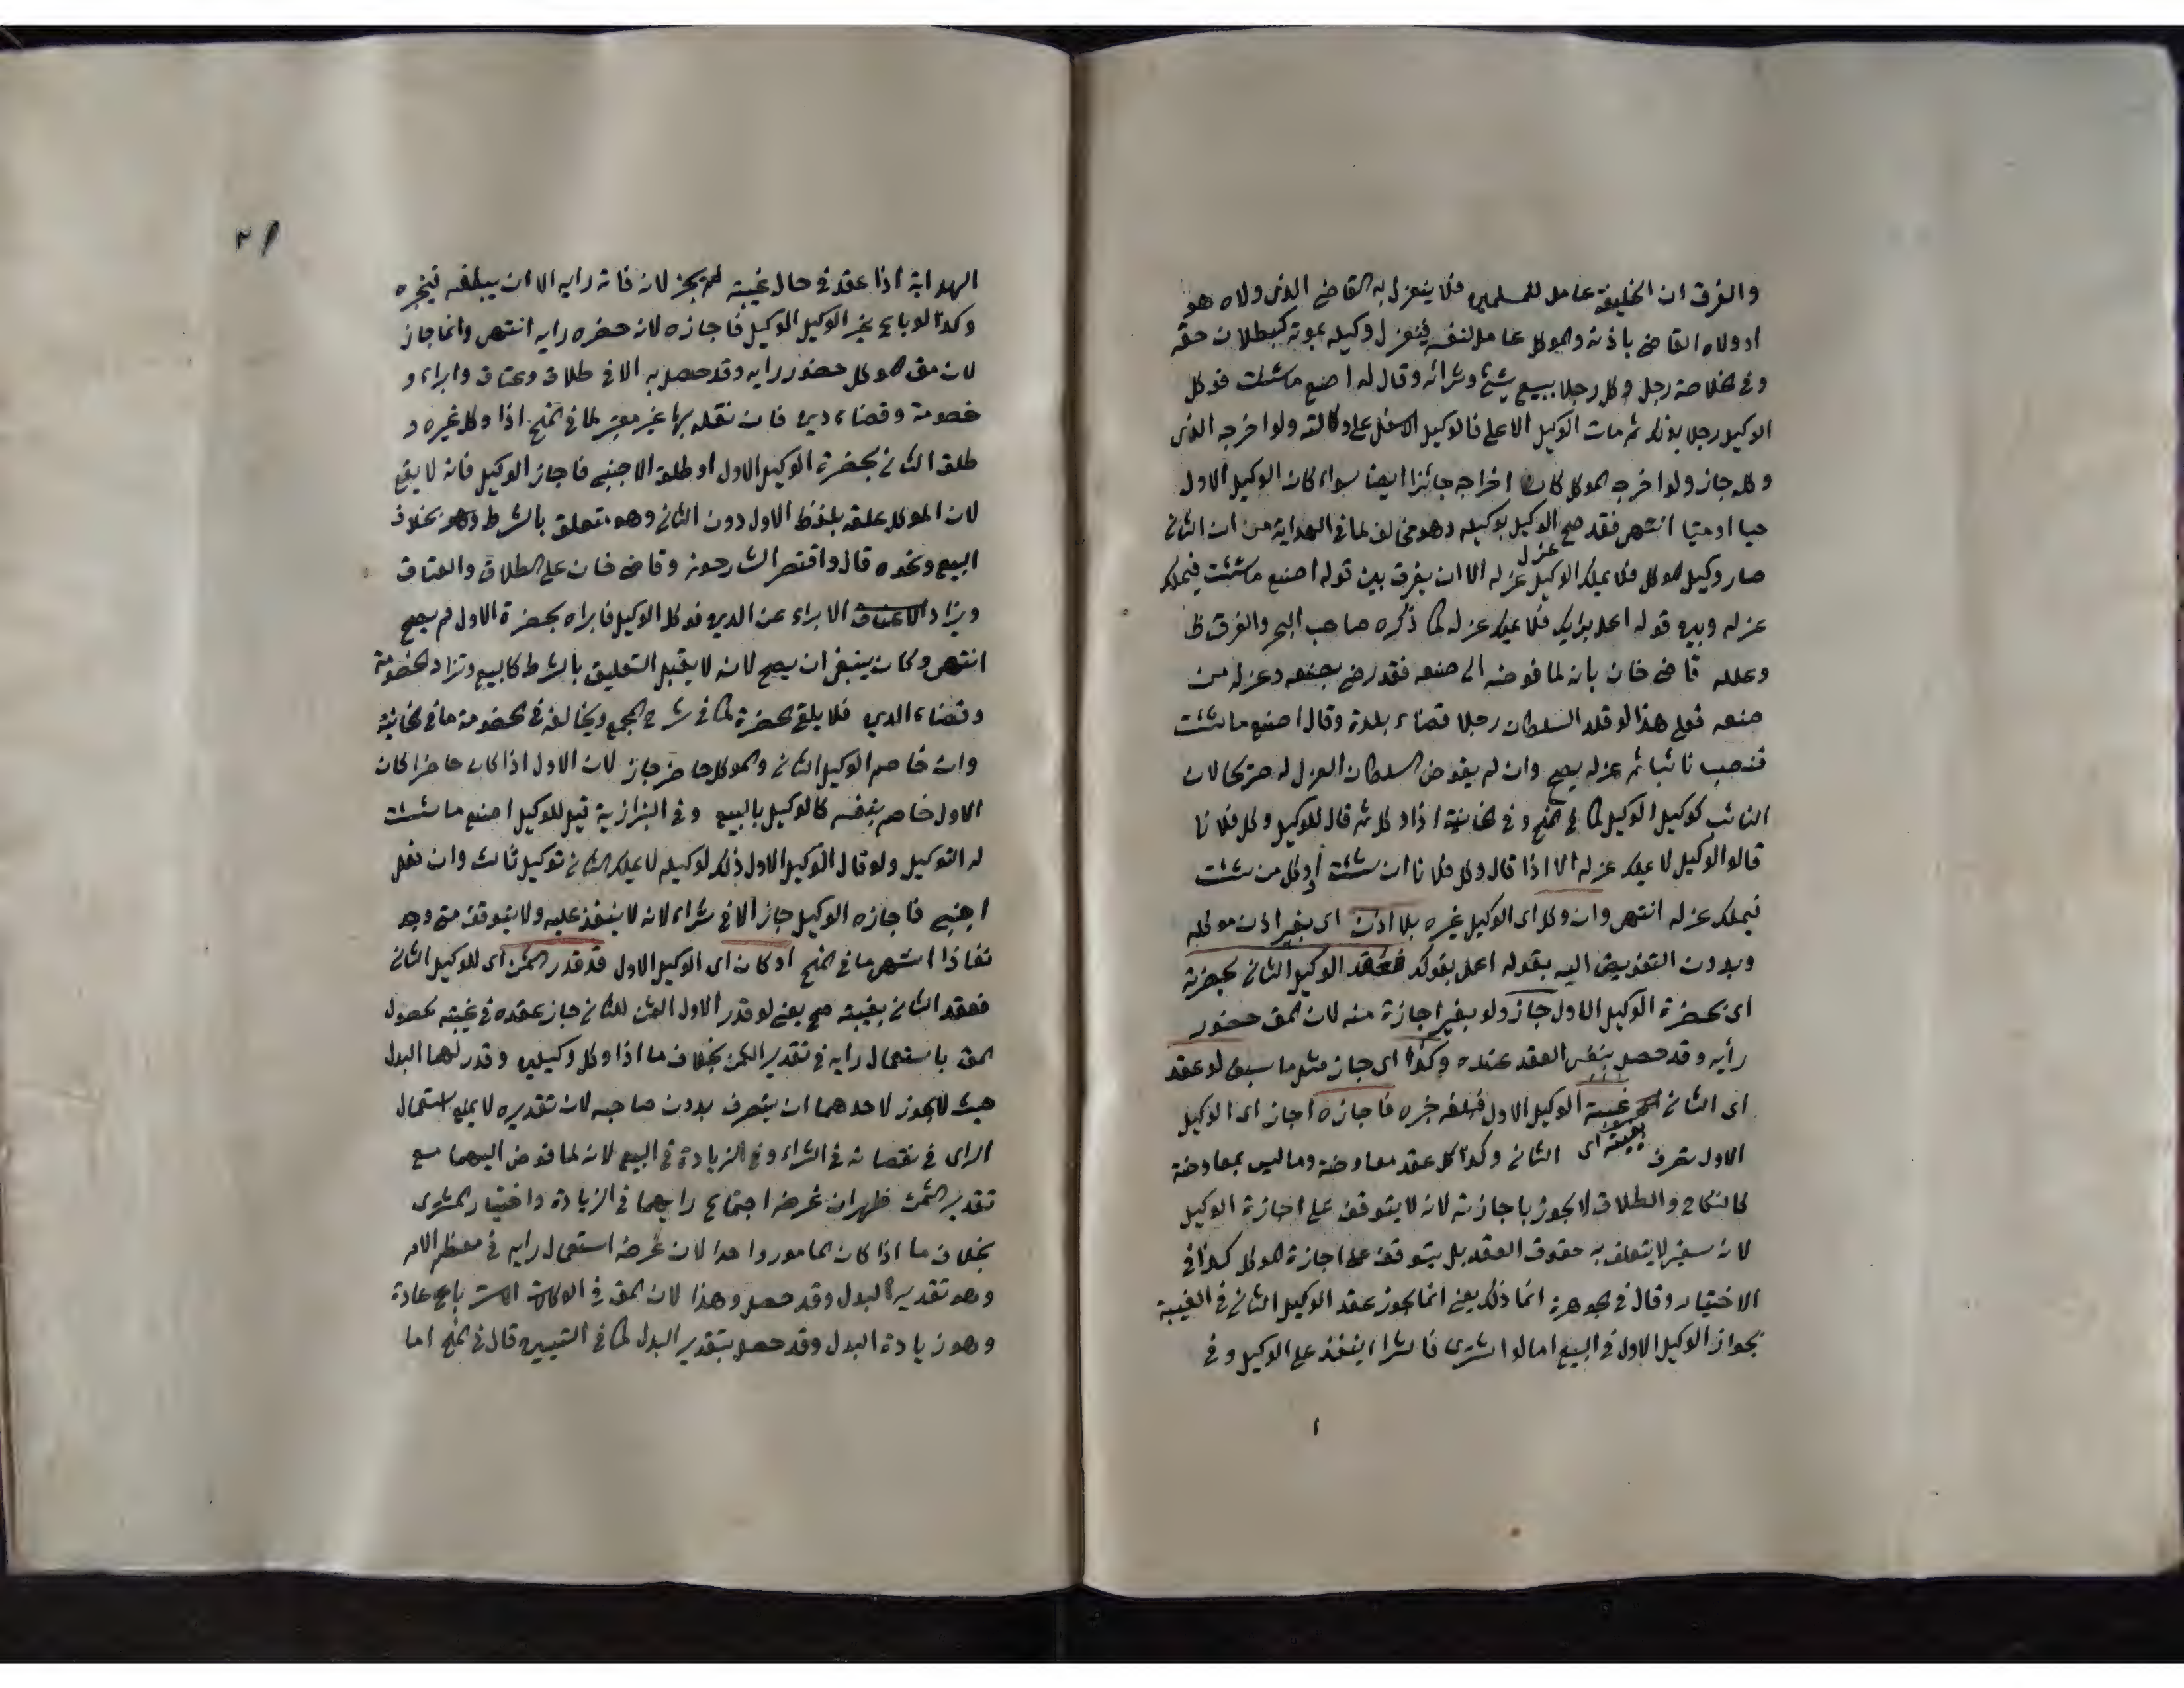 والفرق ان الخليفة عامل للمسلمين فلا ينعزل به القاضى الذى ولاه هو
او ولاه القاضى باذنه والموكل عامل لنفسه فينعزل وكيله بموته لبطلان حقه
وفى الخلاصة رجل وكل رجلا ببيع شئ وشرائه وقال له اصنع ما شئت فوكل
الوكيل رجلا بذلك ثم مات الوكيل الاعلى فالوكيل الاسفل على وكالته ولو اخرجه الذى
وكله جاز ولو اخرجه الموكل كان اخراجه جائزا ايضا سواء كان الوكيل الاول
حيا او ميتا انتهى فقد صح عزل الوكيل بوكيله وهو مخالف لما فى الهداية من ان الثانى
صار وكيل الموكل فلا يملك الوكيل عزله الا ان يفرق بين قوله اصنع ما شئت فيملك
عزله وبين قوله اعمل برايك فلا يملك عزله كما ذكره صاحب البحر والفرق ظ
وعلله قاضى خان بانه لما فوضه الى صنعه فقد رضى بصنعه وعزله من
صنعه فعلى هذا لو قلد السلطان رجلا قضاء بلدة وقال اصنع ما شئت
فنصب نائبا ثم عزله يصح وان لم يفوض السلطان العزل له صريحا لان
النائب كوكيل الوكيل كما فى المنح وفى الخانية اذا وكل ثم قال للوكيل وكل فلانا
قالوا الوكيل لا يملك عزله الا اذا قال وكل فلانا ان شئت او وكل من شئت
فيملك عزله انتهى وان وكل اى الوكيل غيره بلا اذن اى بغير اذن موكله
وبدون التفويض اليه بقوله اعمل بقولك فعقد الوكيل الثانى بحضرته
اى بحضرة الوكيل الاول جاز ولو بغير اجازة منه لان المق حضور
رأيه وقد حصل بنفس العقد عنده وكذا اى جاز مثل ما سبق لو عقد
اى الثانى بغيبته اى غيبة الوكيل الاول فبلغه خبره فاجازه اجاز اى الوكيل
الاول تصرف الثانى وكذا كل عقد معاوضة وما ليس بمعاوضة
كالنكاح والطلاق لا يجوز باجازته لانه لا يتوقف على اجازة الوكيل
لانه سفير لا يتعلق به حقوق العقد بل يتوقف على اجازة الموكل كذا فى
الاختيار وقال فى الجوهرة انما ذلك يعنى انما يجوز عقد الوكيل الثانى فى الغيبة
بجواز الوكيل الاول فى البيع اما لو اشترى فالشراء ينفذ على الوكيل وفى
الهداية اذا عقد فى حال غيبته لم يجز لانه فاته رايه الا ان يبلغه فيجيزه
وكذا لو باع غير الوكيل الوكيل فاجازه لانه حضره رايه انتهى وانما جاز
لان مق الموكل حضور رايه وقد حصل به الا فى طلاق وعتاق وابراء و
خصومة وقضاء دين فان نقله بها غير معتبر لما فى المنح اذا وكل غيره و
طلق الثانى بحضرة الوكيل الاول او طلق الاجنبى فاجاز الوكيل فانه لا يقع
لان الموكل علقه بلفظ الاول دون الثانى وهو متعلق بالشرط وهو بخلاف
البيع ونحوه قال واقتصر الشارحون وقاضى خان على الطلاق والعتاق
ويزاد الابراء عن الدين فوكل الوكيل فابراه بحضرة الاول لم يصح
انتهى وكان ينبغى ان يصح لانه لا يقبل التعليق بالشرط كالبيع وتزاد الخصومة
وقضاء الدين فلا يلغى الحضرة كما فى شرح المجمع ويخالفه فى الخصومة ما فى الخانية
وان خاصم الوكيل الثانى والموكل حاضر جاز لان الاول اذا كان حاضرا كان
الاول خاصم بنفسه كالوكيل بالبيع وفى البزازية قيل للوكيل اصنع ما شئت
له التوكيل ولو قال الوكيل الاول ذلك لوكيله لا يملك الثانى توكيل ثالث وان فعل
اجنبى فاجازه الوكيل جاز الا فى شراء لانه لا ينفذ عليه ولا يتوقف متى وجد
نفاذا انتهى ما فى المنح او كان اى الوكيل الاول قد قدر الثمن اى للوكيل الثانى
فعقد الثانى بغيبته صح يعنى لو قدر الاول الثمن للثانى جاز عقده فى غيبته لحصول
المق باستعمال رايه فى تقدير الثمن بخلاف ما اذا وكل وكيلين وقدر لهما البدل
حيث لا يجوز لاحدهما ان يتصرف بدون صاحبه لان تقديره لا يمنع استعمال
الراى فى نقصانه فى الشراء وفى الزيادة فى البيع لانه لما فوض اليهما مع
تقدير الثمن ظهر ان غرضه اجتماع رايهما فى الزيادة واختيار المشترى
بخلاف ما اذا كان المامور واحدا لان غرضه استعمال رايه فى معظم الامر
وهو تقدير البدل وقد حصل وهذا لان المق فى الوكالة بالبيع عادة
وهو زيادة البدل وقد حصل بتقدير البدل كما فى التبيين قال فى المنح اما